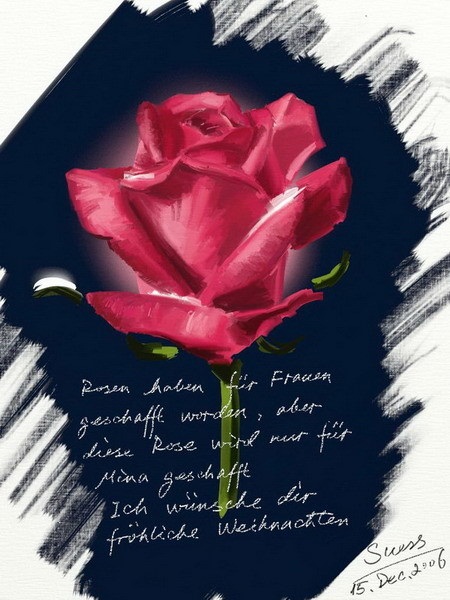 Rosen haben für Frauen
geschafft worden, aber
diese Rose wird nur für
Mina geschafft
Ich wünsche dir
fröhliche Weihnachten
Suess
15. Dec. 2006